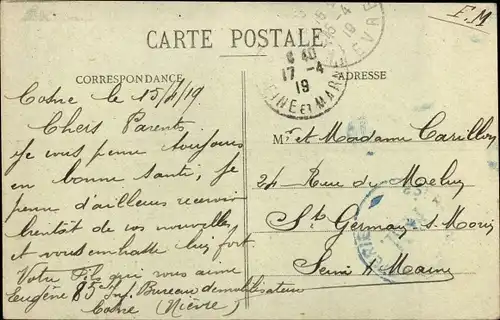 F.M
CARTE POSTALE
CORRESPONDANCE
ADRESSE
15-4
19
NIEVRE
6 40
17-4
19
SEINE ET MARNE
Cosne le 15/4/19
Chers Parents
Je vous pense toujours
en bonne santé, je
pense d'ailleurs recevoir
bientôt de vos nouvelles
et vous embrasse bien fort
Votre fils qui vous aime
Eugène 85e Inf. Bureau démobilisateur
Cosne (Nièvre)
Mr et Madame Carillon
24 Rue de Melun
St Germain s Morin
Seine & Marne